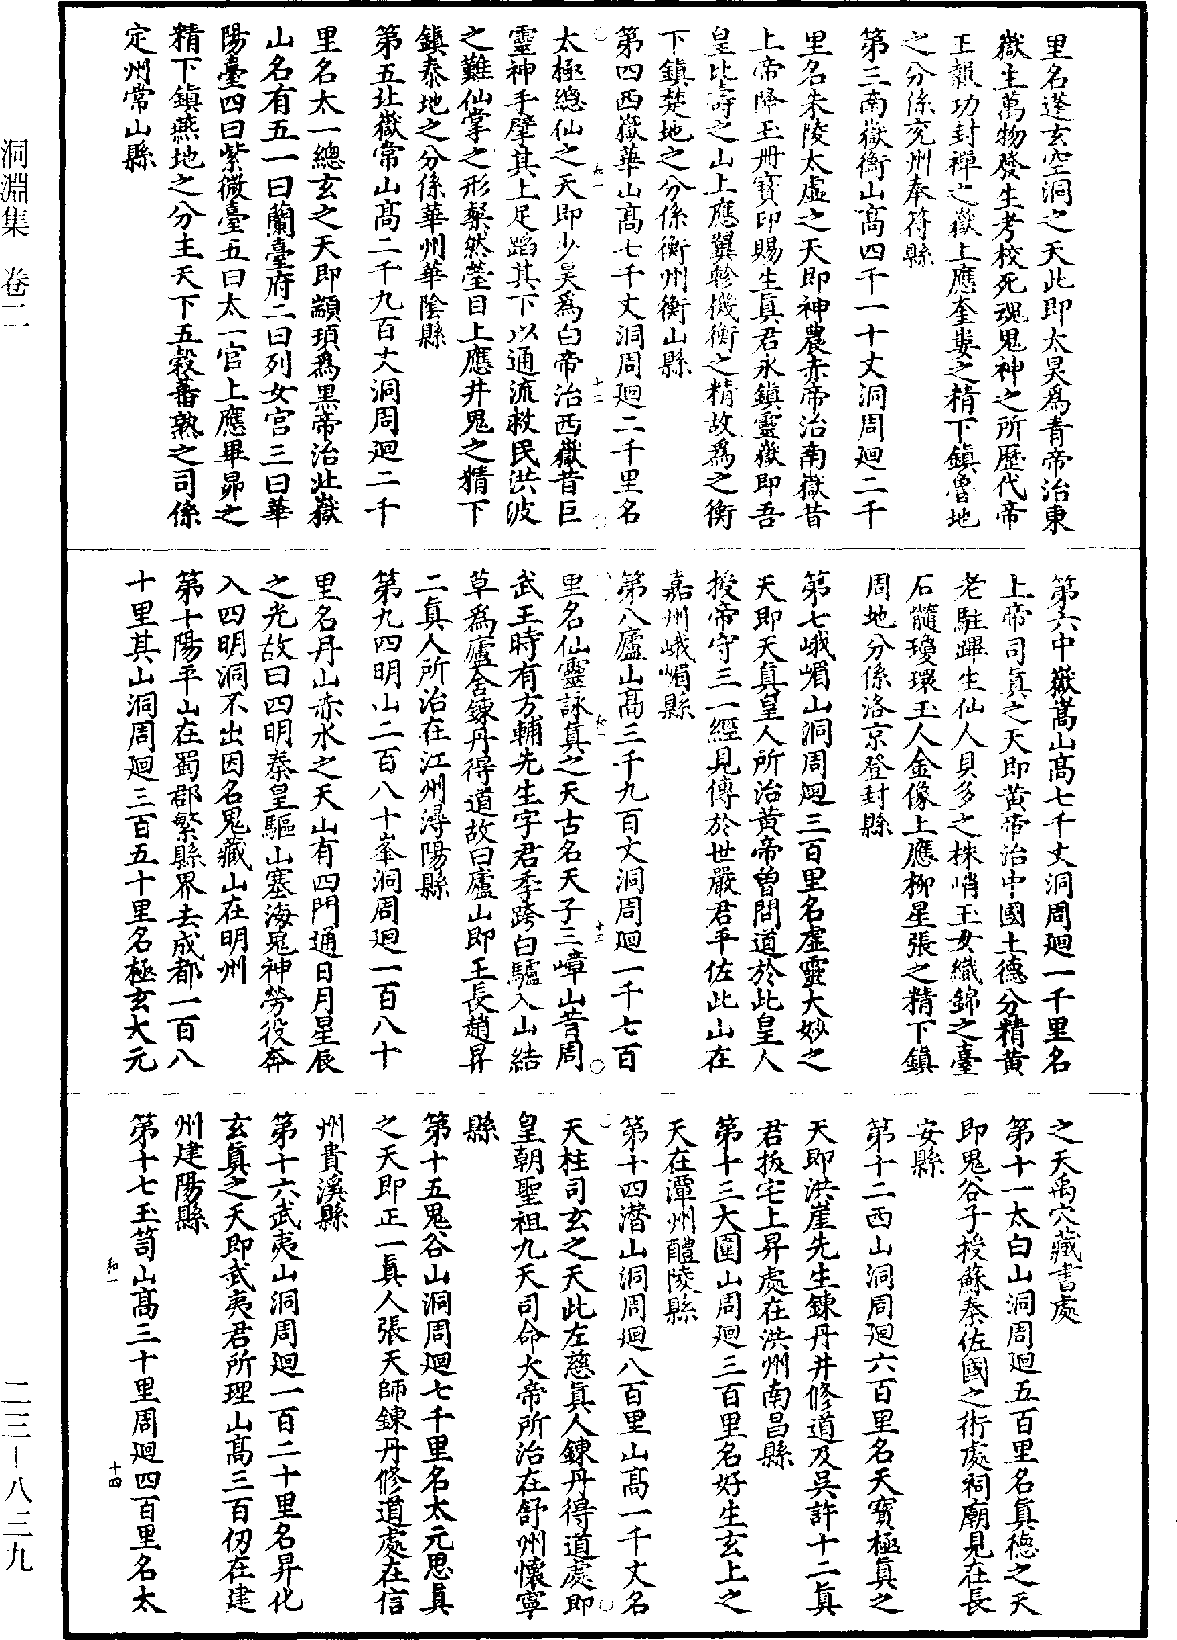 里名蓬玄空洞之天此即太昊爲青帝治東
嶽主萬物發生考校死魂鬼神之所歷代帝
王報功封禪之嶽上應奎婁之精下鎮魯地
之分係兖州奉符縣
第三南嶽衡山高四千一十丈洞周廻二千
里名朱陵太虛之天即神農赤帝治南嶽昔
上帝降玉冊寶印賜生真君永鎮靈嶽即吾
皇比壽之山上應翼軫機衡之精故爲之衡
下鎮楚地之分係衡州衡山縣
第四西嶽華山高七千丈洞周廻二千里名
太極總仙之天即少昊爲白帝治西嶽昔巨
靈神手擘其上足蹈其下以通流救民洪波
之難仙掌之形粲然瑩目上應井鬼之精下
鎮泰地之分係華州華陰縣
第五北嶽常山高二千九百丈洞周廻二千
里名太一總玄之天即顓頊爲黑帝治北嶽
山名有五一曰蘭臺府二曰列女宮三曰華
陽臺四曰紫微臺五曰太一官上應畢昴之
精下鎮燕地之分主天下五穀蕃熟之司係
定州常山縣
第六中嶽嵩山高七千丈洞周廻一千里名
上帝司真之天即黃帝治中國土德分精黃
老駐蹕生仙人貝多之株峭玉女織錦之臺
石髓瓊瑰玉人金像上應柳星張之精下鎮
周地分係洛京登封縣
第七峨嵋山洞周廻三百里名虛靈大妙之
天即天真皇人所治黃帝曾問道於此皇人
授帝守三一經見傳於世嚴君平佐此山在
嘉州峨嵋縣
第八廬山高三千九百丈洞周廻一千七百
里名仙靈詠真之天古名天子三嶂山昔周
武王時有方輔先生字君季跨白驢入山結
草爲廬舍鍊丹得道故曰廬山即王長趙昇
二真人所治在江州潯陽縣
第九四明山二百八十峯洞周廻一百八十
里名丹山赤水之天山有四門通日月星辰
之光故曰四明秦皇驅山塞海鬼神勞役奔
入四明洞不出因名鬼藏山在明州
第十陽平山在蜀郡繁縣界去成都一百八
十里其山洞周廻三百五十里名極玄大元
之天禹穴藏書處
第十一太白山洞周廻五百里名真德之天
即鬼谷子授蘇秦佐國之術處祠廟見在長
安縣
第十二西山洞周廻六百里名天寶極真之
天即洪崖先生鍊丹井修道及吳許十二真
君拔宅上昇處在洪州南昌縣
第十三大圍山周廻三百里名好生玄上之
天在潭州醴陵縣
第十四潜山洞周廻八百里山高一千丈名
天柱司玄之天此左慈真人鍊丹得道處即
皇朝聖祖九天司命大帝所治在舒州懷寧
縣
第十五鬼谷山洞周廻七千里名太元思真
之天即正一真人張天師鍊丹修道處在信
州貴溪縣
第十六武夷山洞周廻一百二十里名昇化
玄真之天即武夷君所理山高三百仞在建
州建陽縣
第十七玉笥山高三十里周廻四百里名太
洞淵集　卷二
二三－八三九
十二
十三
十四